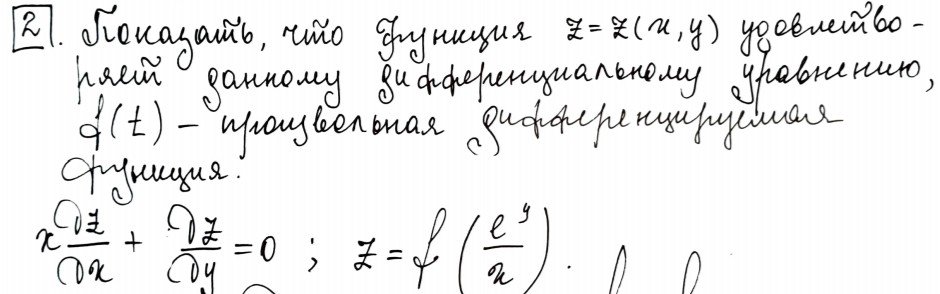 2. Показать, что функция z = z(x, y) удовлетво-
ряет данному дифференциальному уравнению,
f(t) – произвольная дифференцируемая
функция.
x ∂z/∂x + ∂z/∂y = 0 ; z = f(e^y/x).